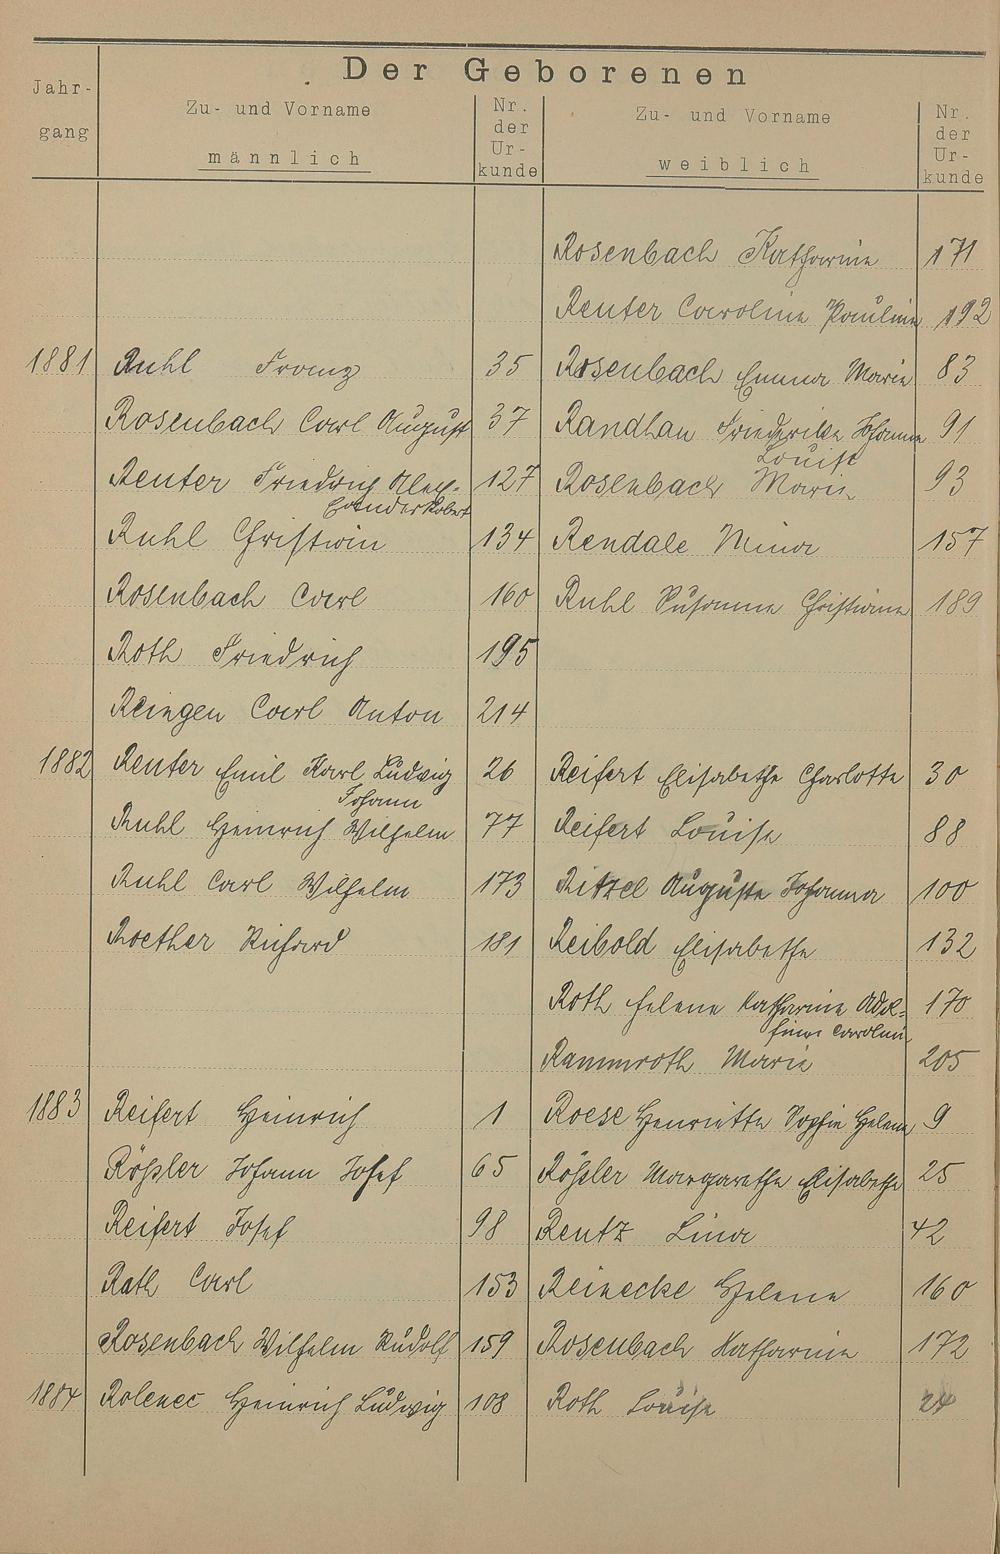 Der Geborenen
Jahr-
gang
Zu- und Vorname
männlich
Nr.
der
Ur-
kunde
Zu- und Vorname
weiblich
Nr.
der
Ur-
kunde
Rosenbach Katharine 171
Reuter Caroline Pauline 192
1881 Ruhl Franz 35 Rosenbach Emma Marie 83
Rosenbach Carl August 37 Randhau Friederike Johanna 91
Louise
Reuter Friedrich Alex- 127 Rosenbach Marie 93
sander Robert
Ruhl Christian 134 Rendale Mina 157
Rosenbach Carl 160 Ruhl Susanna Christiane 189
Roth Friedrich 195
Reingen Carl Anton 214
1882 Reuter Emil Karl Ludwig 26 Reifert Elisabethe Charlotte 30
Johann
Ruhl Heinrich Wilhelm 77 Reifert Louise 88
Ruhl Carl Wilhelm 173 Ritzel Auguste Johanna 100
Roether Richard 181 Reibold Elisabethe 132
Roth Helene Katharine Adol= 170
fine Caroline
Rammroth Marie 205
1883 Reifert Heinrich 1 Roese Henriette Sophie Helene 9
Rößler Johann Josef 65 Rößler Margarethe Elisabethe 25
Reifert Josef 98 Rentz Lina 42
Rath Carl 153 Reinecke Helene 160
Rosenbach Wilhelm Rudolf 159 Rosenbach Katharine 172
1884 Rolenec Heinrich Ludwig 108 Roth Louise 24